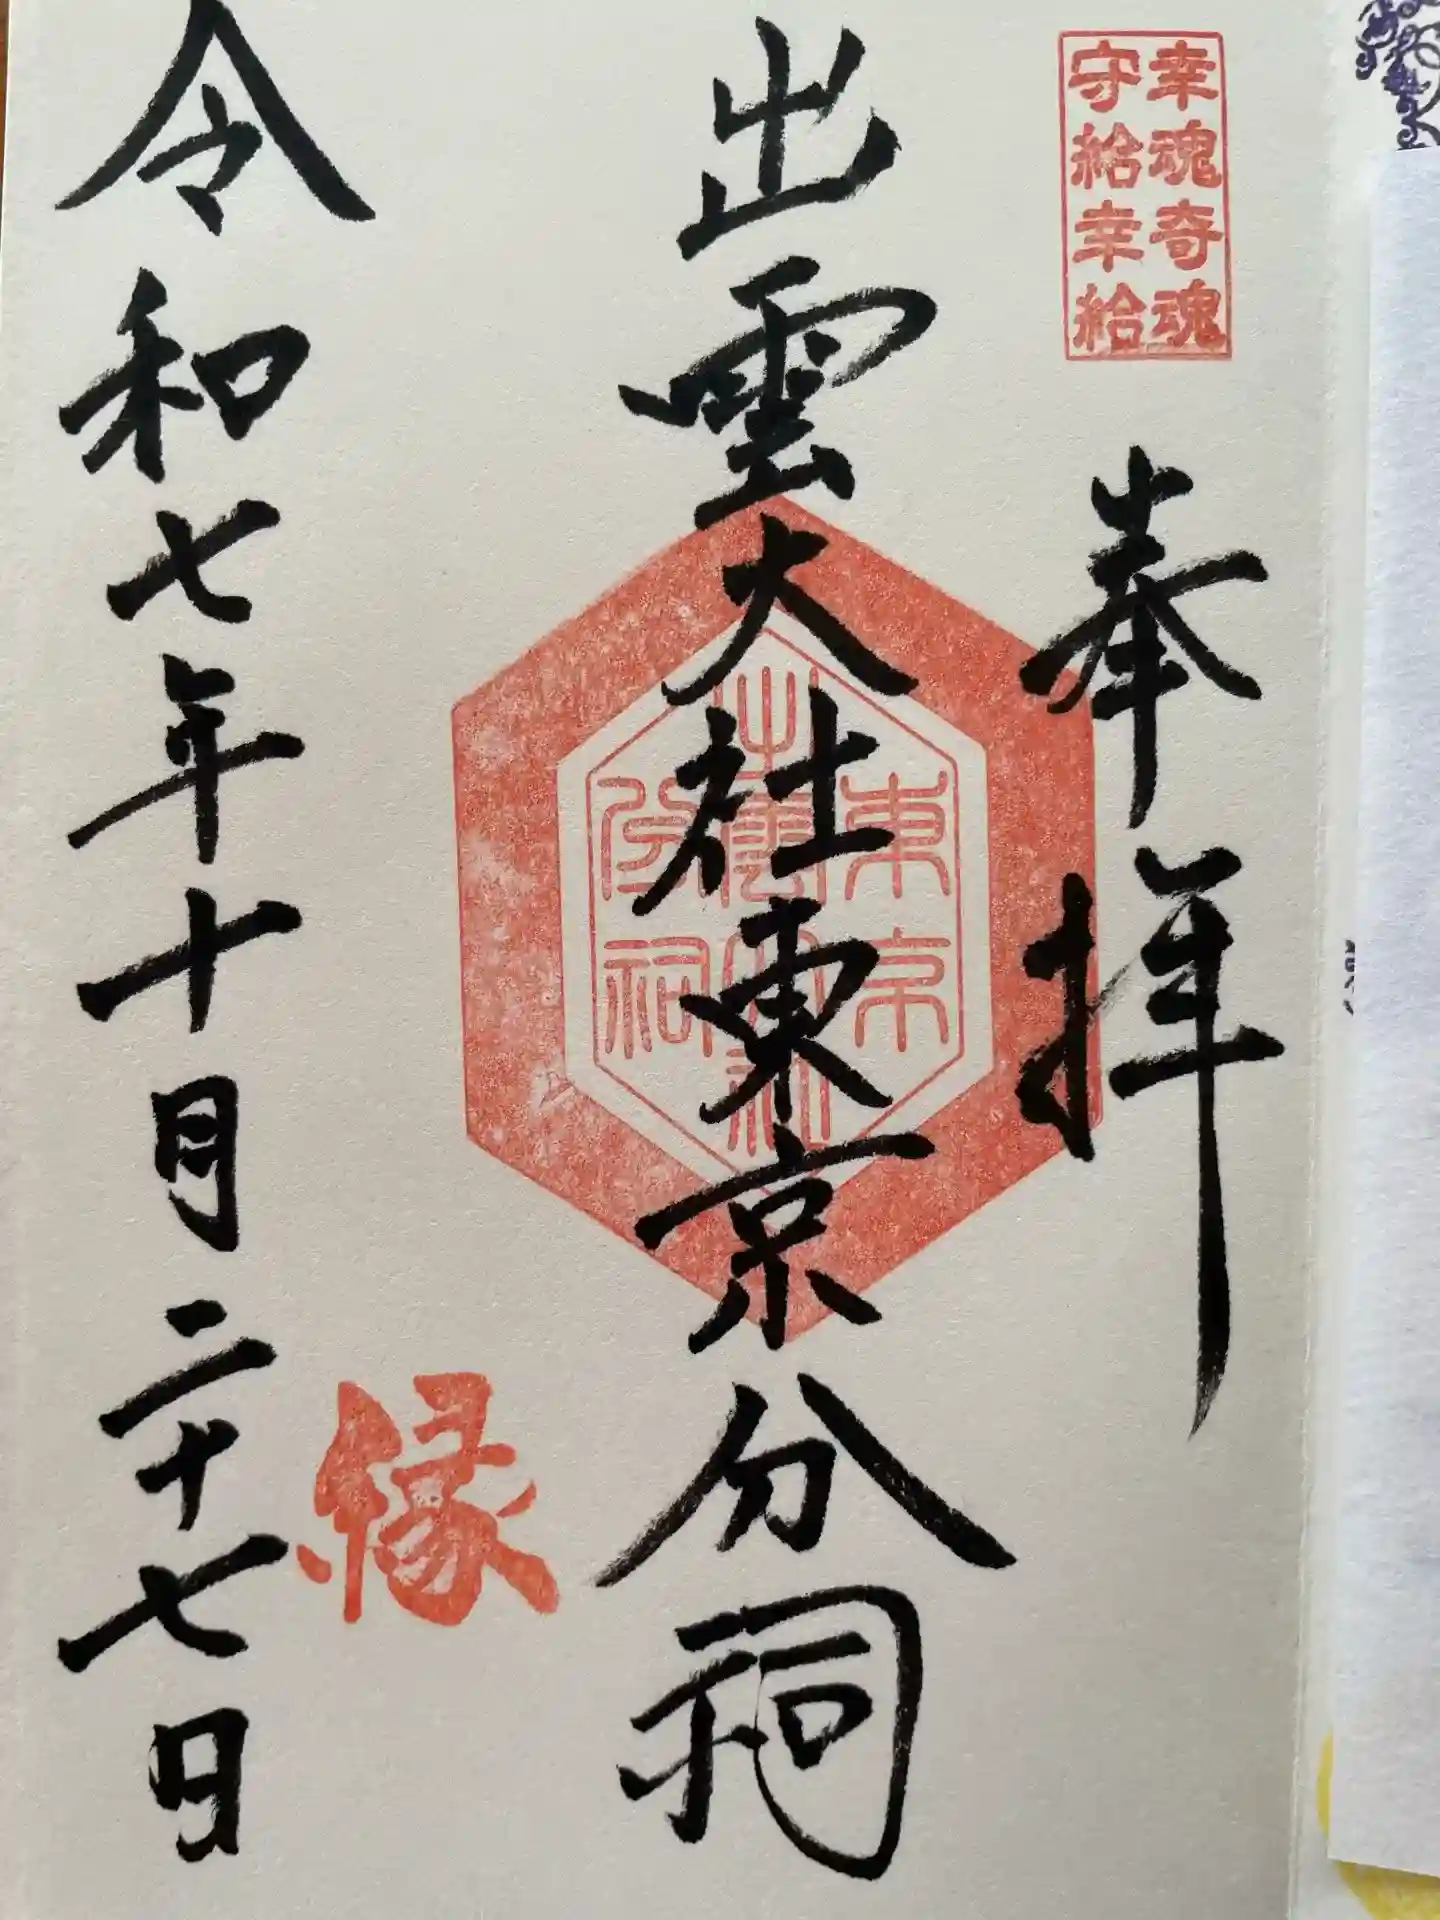 幸魂奇魂
守給幸給
奉拝
出雲大社東京分祠
東京
出雲大社
分祠
縁
令和七年十月二十七日